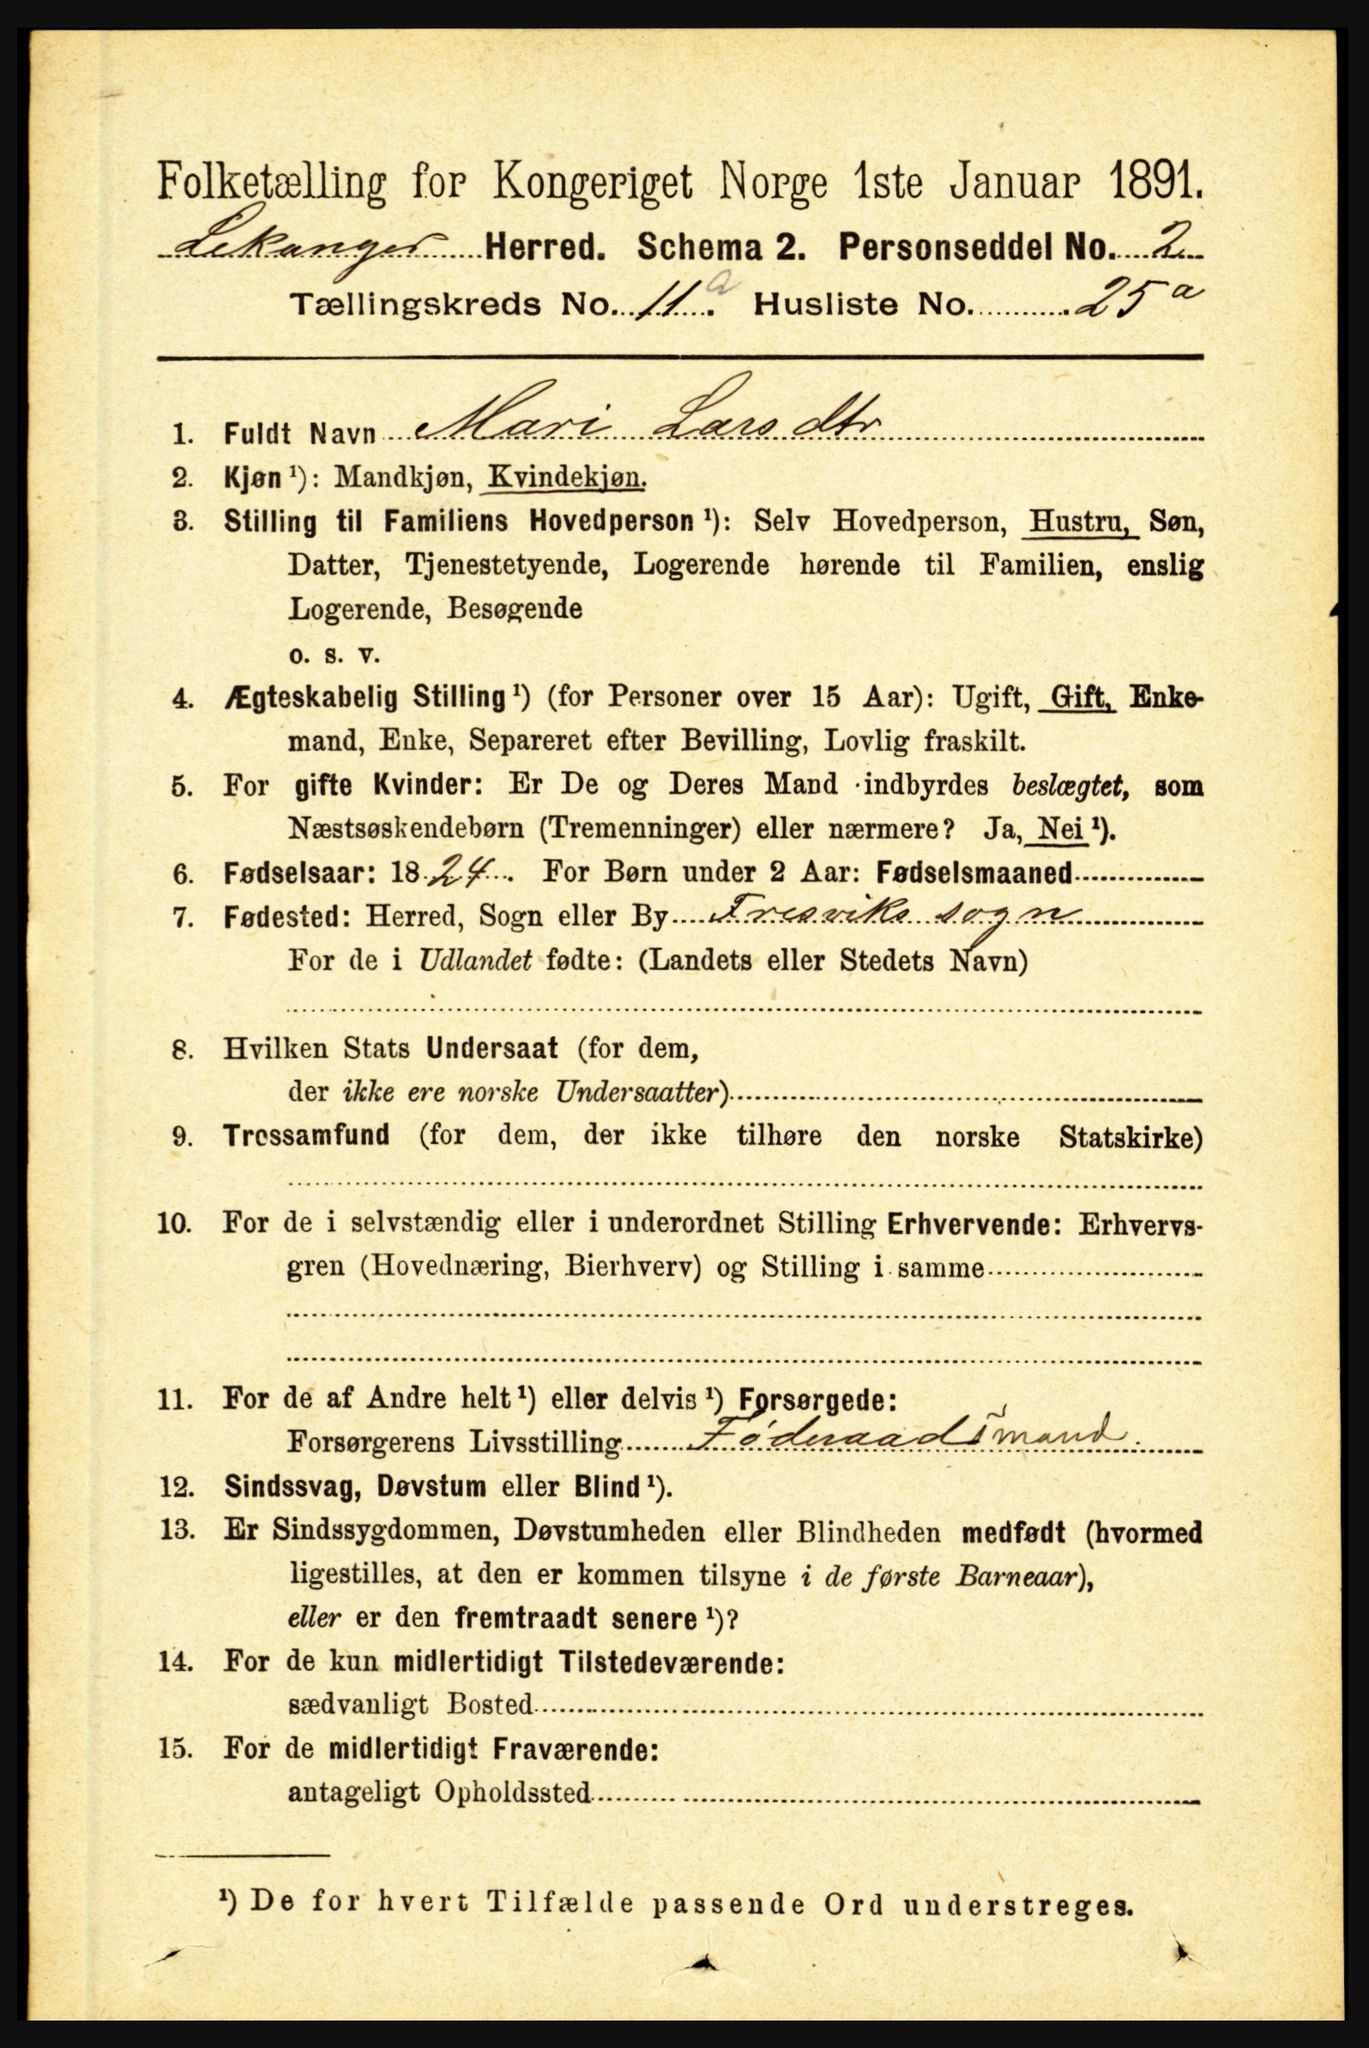 Folketælling for Kongeriget Norge 1ste Januar 1891.
Lekanger Herred. Schema 2. Personseddel No. 2
Tællingskreds No. 11.a Husliste No. 25 a
1. Fuldt Navn Mari Larsdtr
2. Kjøn ¹): Mandkjøn, Kvindekjøn.
3. Stilling til Familiens Hovedperson ¹): Selv Hovedperson, Hustru, Søn,
Datter, Tjenestetyende, Logerende hørende til Familien, enslig
Logerende, Besøgende
o. s. v.
4. Ægteskabelig Stilling ¹) (for Personer over 15 Aar): Ugift, Gift, Enke-
mand, Enke, Separeret efter Bevilling, Lovlig fraskilt.
5. For gifte Kvinder: Er De og Deres Mand indbyrdes beslægtet, som
Næstsøskendebørn (Tremenninger) eller nærmere? Ja, Nei ¹).
6. Fødselsaar: 1824. For Børn under 2 Aar: Fødselsmaaned
7. Fødested: Herred, Sogn eller By Fresviks sogn
For de i Udlandet fødte: (Landets eller Stedets Navn)
8. Hvilken Stats Undersaat (for dem,
der ikke ere norske Undersaatter)
9. Trossamfund (for dem, der ikke tilhøre den norske Statskirke)
10. For de i selvstændig eller i underordnet Stilling Erhvervende: Erhvervs-
gren (Hovednæring, Bierhverv) og Stilling i samme
11. For de af Andre helt ¹) eller delvis ¹) Forsørgede:
Forsørgerens Livsstilling Føderaadsmand.
12. Sindssvag, Døvstum eller Blind ¹).
13. Er Sindssygdommen, Døvstumheden eller Blindheden medfødt (hvormed
ligestilles, at den er kommen tilsyne i de første Barneaar),
eller er den fremtraadt senere ¹)?
14. For de kun midlertidigt Tilstedeværende:
sædvanligt Bosted
15. For de midlertidigt Fraværende:
antageligt Opholdssted
¹) De for hvert Tilfælde passende Ord understreges.